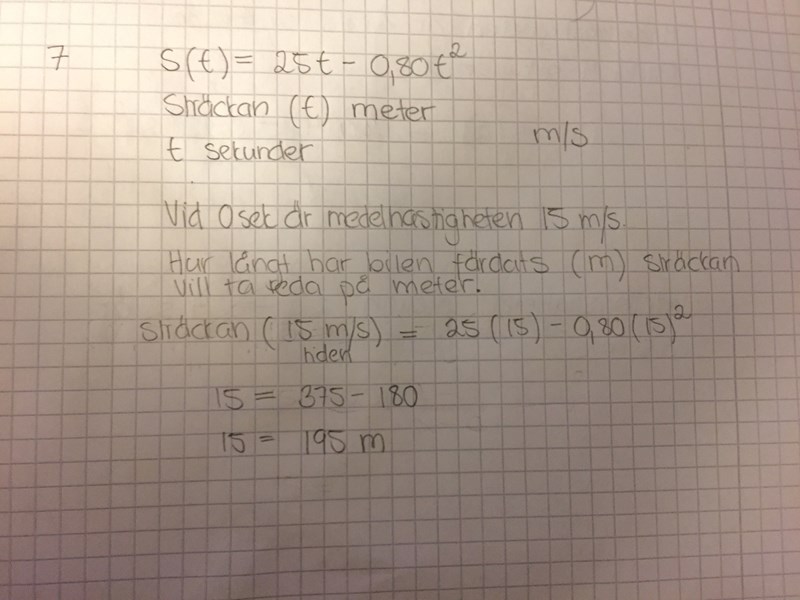 7 S(t) = 25t - 0,80t²
Sträckan (t) meter
m/s
t sekunder
Vid 0 sek är medelhastigheten 15 m/s.
Hur långt har bilen färdats (m) sträckan
vill ta reda på meter.
Sträckan (15 m/s) = 25(15) - 0,80(15)²
tiden
15 = 375 - 180
15 = 195 m